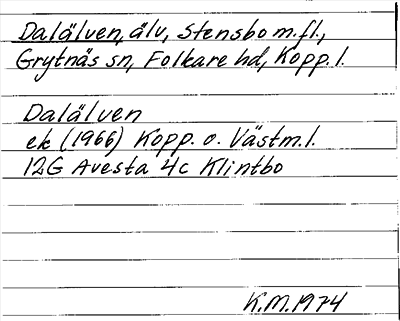 Dalälven, älv, Stensbo m.fl.,
Grytnäs sn, Folkare hd, Kopp. l.
Dalälven
ek (1966) Kopp. o. Västm. l.
12G Avesta 4c Klintbo
K.M. 1974